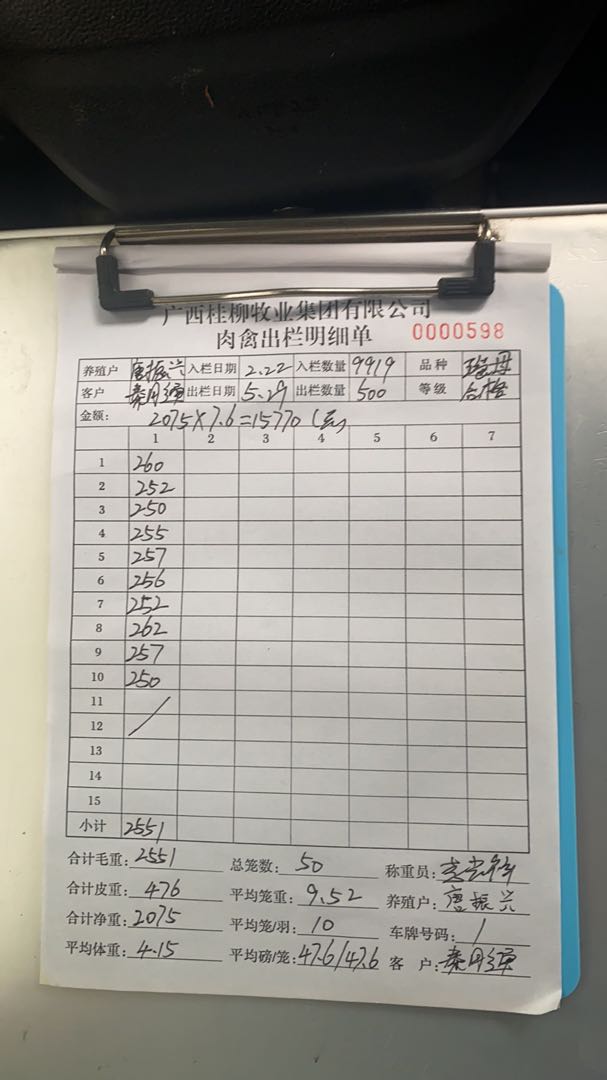 广西桂柳牧业集团有限公司
肉禽出栏明细单 0000598
养殖户 唐振兴 入栏日期 2.22 入栏数量 9919 品种
客户 秦用 出栏日期 5.29 出栏数量 500 等级 合格
金额: 2075×7.6=15770（元）
1 2 3 4 5 6 7
1 260
2 252
3 250
4 255
5 257
6 256
7 252
8 262
9 257
10 250
11
12
13
14
15
小计 2551
合计毛重: 2551 总笼数: 50 称重员:
合计皮重: 476 平均笼重: 9.52 养殖户: 唐振兴
合计净重: 2075 平均笼/羽: 10 车牌号码: /
平均体重: 4.15 平均磅/笼: 47.6/47.6 客 户: 秦用